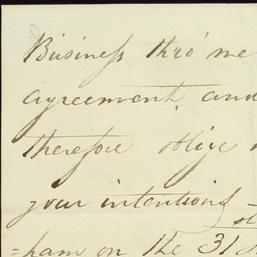 Business thro' me
agreement, and
therefore oblige
your intentions
=ham on the 31